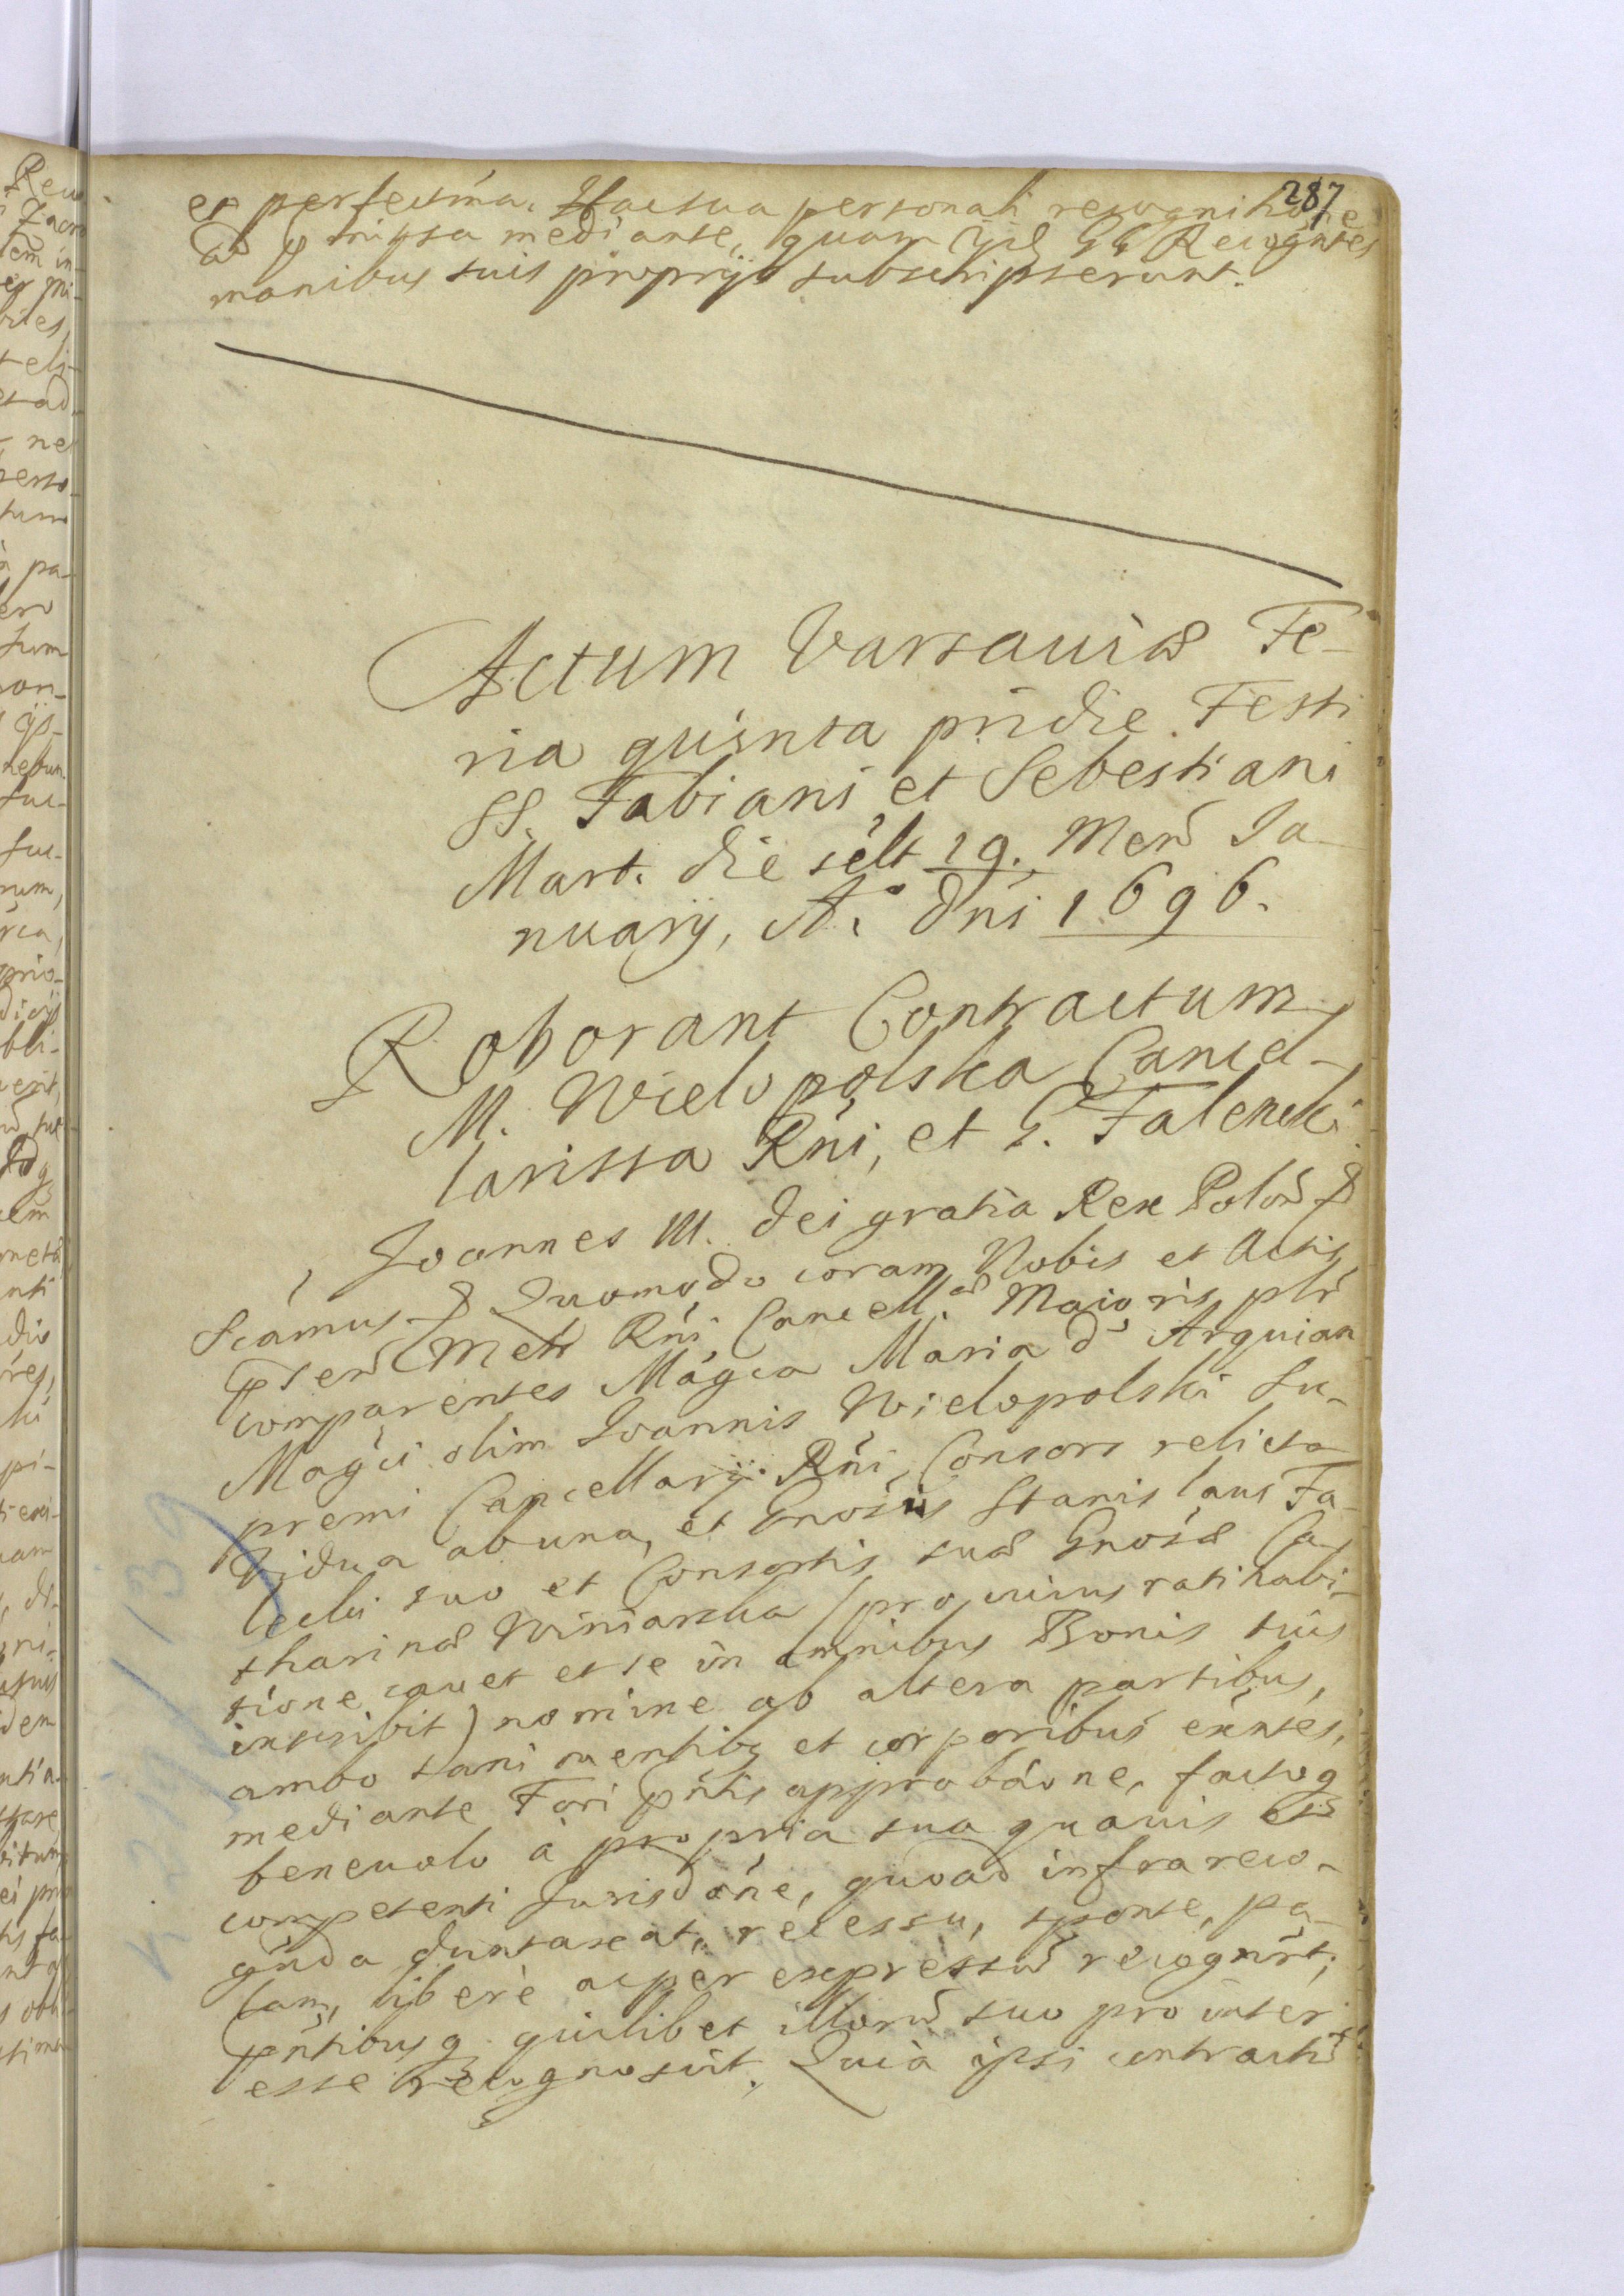 287
et perfectma. Hac sua personali recognitione
ad missa mediante, quam Recogntes
manibus suis proprijs subscripserunt.
Actum Varsauiæ Fe-
ria quinta pridie Festi
SS. Fabiani et Sebestiani
Mart. die sclt 19. Men̄ Ja-
nuarij, A. dn̄i 1696.
Roborant Contractum
M. Wielopolska Cancel-
larissa Rn̄i, et G. Falencki
Joannes III. dei gratia Rex Polon̄ &
Sciamus & Quomodo coram Nobis et Actis
pn̄sen̄ Metr Rn̄i Cancell. æ Maioris plr̄
comparentes Mag̃ca Maria d' Arquian
Mag̃ci olim Joannis Wielopolski Su-
premi Cancellarij Rn̄i, Consors relicta
Vidua ab una, et Gn̄osus Stanislaus Fa-
lecki suo et Consortis suæ Gn̄osæ Ca-
tharinæ Winiarska (pro cuius ratihabi-
tione cauet et se in omnibus Bonis suis
inscribit) nomine ab altera partibus,
ambo sani mentibq et corporibus exn̄tes,
mediante Fori pn̄tis approbão̅ne, factoq
beneuolo à propria sua quauis et
competenti Jurisdõne, quoad infrareco-
gn̄da duntaxat, recessu, sponte, pa-
lam, liberè acper expressū recognr̄t;
pn̄tibusq quilibet illorū suo pro inter
esse recognoscit. Quia ipsi contractū